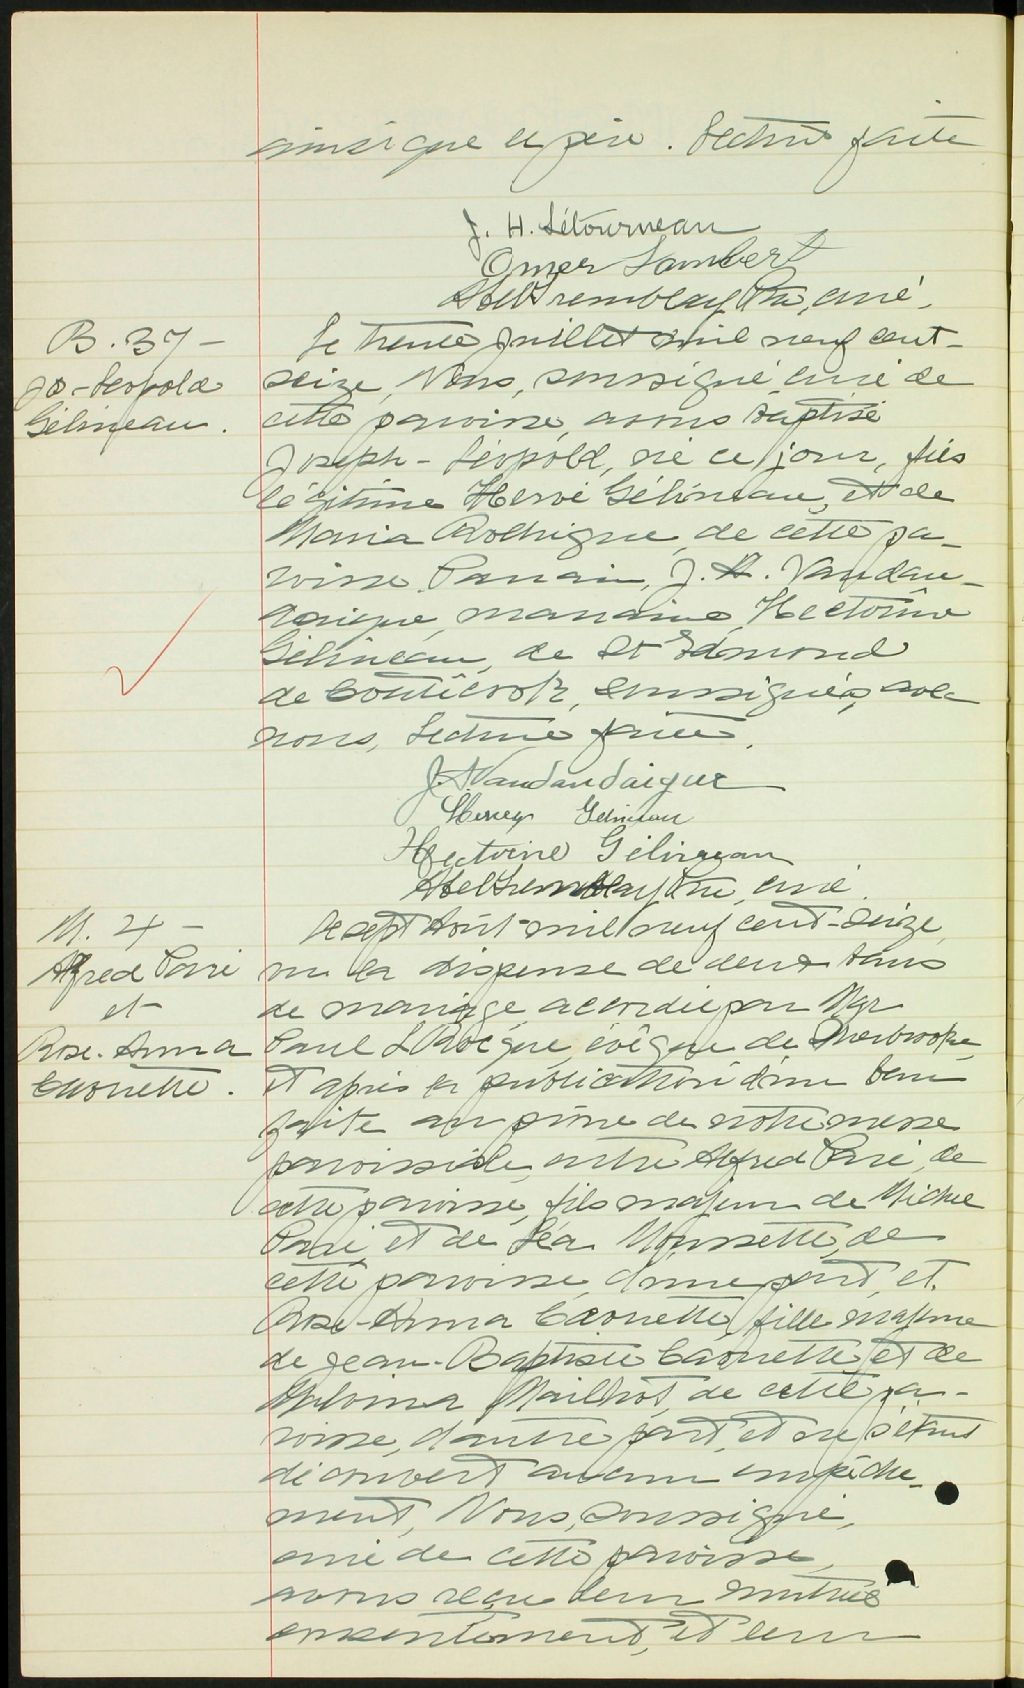 ainsi que le père. Lecture faite
J. H. Létourneau
Omer Lambert
Abel Tremblay Ptre, curé.
B. 37 -
Jos-Léopold
Gélineau.
Le trente juillet mil neuf cent-
seize, Nous, soussigné, curé de
cette paroisse, avons baptisé
Joseph-Léopold, né ce jour, fils
légitime Hervé Gélineau, et de
Maria Rodrigue, de cette pa-
roisse. Parrain, J. A. Vandan-
daigue, marraine, Hectorine
Gélineau, de St Edmond
de Coaticook, soussignés, avec
nous, Lecture faite.
J. A Vandandaigue
Hervey Gelineau
Hectorine Gélineau
Abel Tremblay Ptre, curé
M. 4 -
Alfred Paré
et
Rose-Anna
Caouette.
Le sept Août mil neuf cent-seize,
vu la dispense de deux bans
de mariage accordée par Mgr
Paul LaRocque, évêque de Sherbrooke,
et après la publication d'un ban
faite au prône de notre messe
paroissiale, entre Alfred Paré, de
cette paroisse, fils majeur de Michel
Paré, et de Léa Moussette, de
cette paroisse, d'une part, et
Rose-Anna Caouette, fille majeure
de Jean-Baptiste Caouette, et de
Malvina Mailhot, de cette pa-
roisse, d'autre part, et ne s'étant
découvert aucun empêche-
ment, Nous, soussigné,
curé de cette paroisse,
avons reçu leur mutuel
consentement, et leur